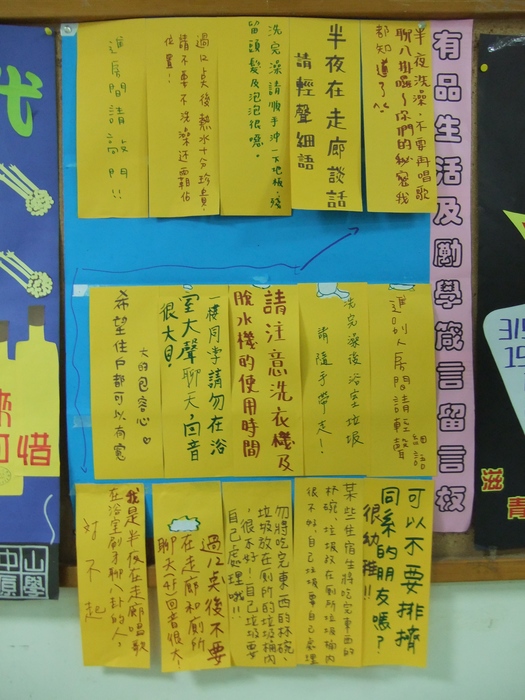 有品生活及勵學箴言留言板
半夜洗澡,不要再唱歌
聊八卦囉~你們的秘密我
都知道了^^
半夜在走廊談話
請輕聲細語
洗完澡請順手沖一下地板,殘
留頭髮及泡泡很噁。
過12點後熱水十分珍貴!
請不要不洗澡还霸佔
位置!
進房間請敲門!!
進別人房間請輕聲
細語
洗完澡後浴室垃圾
請隨手帶走!
請注意洗衣機及
脫水機的使用時間
一樓同學請勿在浴
室大聲聊天,回音
很大!
希望住戶都可以有寬
大的包容心
可以不要排擠
同系的朋友嗎?
很幼稚!!
某些住宿生將吃完東西的
杯碗、垃圾放在廁所垃圾桶內
很不好,自己垃圾要自己處理
勿將吃完東西的杯碗、
垃圾放在廁所的垃圾桶內
,很不好!自己垃圾要
自己處理哦!!
過12點後不要
在走廊和廁所
聊天(4F)回音很大!
我是半夜在走廊唱歌
在浴室刷牙聊八卦的人,
對不起
中山
原學
惜
3/
滋
青